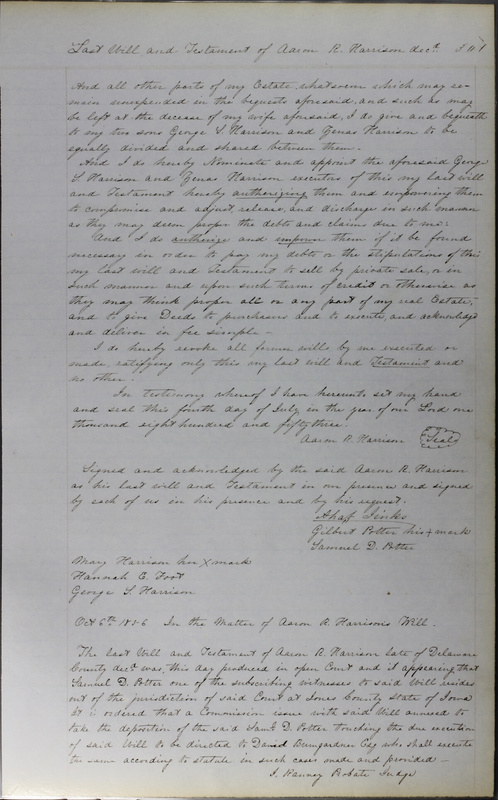 Last Will and Testament of Aaron R. Harrison decd.
And all other parts of my Estate whatsoever which may re-
main unexpended in the bequests aforesaid, and such as may
be left at the decease of my wife aforesaid, I do give and bequeath
to my two sons George S. Harrison and Genas Harrison to be
equally divided and shared between them.
And I do hereby Nominate and appoint the aforesaid George
S. Harrison and Genas Harrison executors of this my last will
and Testament hereby authorizing them and empowering them
to compromise and adjust, release, and discharge in such manner
as they may deem proper the debts and claims due to me:
And I do authorize and empower them if it be found
necessary in order to pay my debts or the stipulations of this
my Last will and Testament to sell by private sale, or in
such manner and upon such terms of credit or otherwise as
they may think proper all or any part of my real Estate,
and to give Deeds to purchasers and to execute, and acknowledge
and deliver in fee simple —
I do hereby revoke all former wills by me executed or
made, ratifying only this my last will and Testament and
no other.
In testimony whereof I have hereunto set my hand
and seal this fourth day of July in the year of our Lord one
thousand eight hundred and fifty three.
Aaron R. Harrison Seal
Signed and acknowledged by the said Aaron R. Harrison
as his last will and Testament in our presence and signed
by each of us in his presence and by his request.
Ahab Jinks
Gilbert Potter his x mark
Samuel D. Potter
Mary Harrison her X mark
Hannah C. Foot
George S. Harrison
Oct 6th 1856 In the Matter of Aaron R. Harrisons Will.
The last Will and Testament of Aaron R. Harrison late of Delaware
County decd. was, this day produced in open Court and it appearing that
Samuel D. Potter one of the subscribing witnesses to said Will resides
out of the jurisdiction of said Court at Jones County State of Iowa
It is ordered that a Commission issue with said Will annexed to
take the deposition of the said Saml. D. Potter touching the due execution
of said Will to be directed to David Bumgardner Esq who shall execute
the same according to statute in such cases made and provided —
J. Ranney Probate Judge